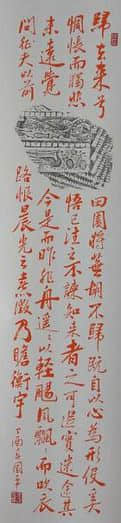 歸去来兮田園將蕪胡不歸既自以心為形役奚
惆悵而獨悲悟已往之不諫知来者之可追實迷途其
未遠覺今是而昨非舟遥遥以輕颺風飄飄而吹衣
问征夫以前路恨晨光之熹微乃瞻衡宇
丁酉